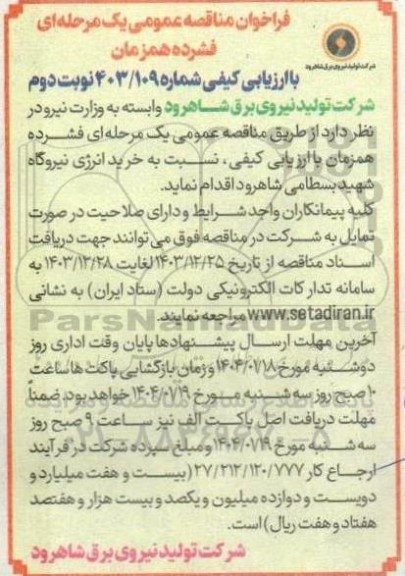 فراخوان مناقصه عمومی یک مرحله ای
فشرده همزمان
شرکت تولید نیروی برق شاهرود
با ارزیابی کیفی شماره ۴۰۳/۱۰۹ نوبت دوم
شرکت تولید نیروی برق شاهرود وابسته به وزارت نیرو در
نظر دارد از طریق مناقصه عمومی یک مرحله ای فشرده
همزمان با ارزیابی کیفی، نسبت به خرید انرژی نیروگاه
شهید بسطامی شاهرود اقدام نماید.
کلیه پیمانکاران واجد شرایط و دارای صلاحیت در صورت
تمایل به شرکت در مناقصه فوق می توانند جهت دریافت
اسناد مناقصه از تاریخ ۱۴۰۳/۱۲/۲۵ لغایت ۱۴۰۳/۱۲/۲۸ به
سامانه تدارکات الکترونیکی دولت (ستاد ایران) به نشانی
www.setadiran.ir مراجعه نمایند.
آخرین مهلت ارسال پیشنهادها پایان وقت اداری روز
دوشنبه مورخ ۱۴۰۴/۰۱/۱۸ و زمان بازگشایی پاکت ها ساعت
۱۰ صبح روز سه شنبه مورخ ۱۴۰۴/۰۱/۱۹ خواهد بود. ضمناً
مهلت دریافت اصل پاکت الف نیز ساعت ۹ صبح روز
سه شنبه مورخ ۱۴۰۴/۰۱/۱۹ و مبلغ سپرده شرکت در فرآیند
ارجاع کار ۲۷/۲۱۲/۱۲۰/۷۷۷ (بیست و هفت میلیارد و
دویست و دوازده میلیون و یکصد و بیست هزار و هفتصد
هفتاد و هفت ریال) است.
شرکت تولید نیروی برق شاهرود
ParsNamadData